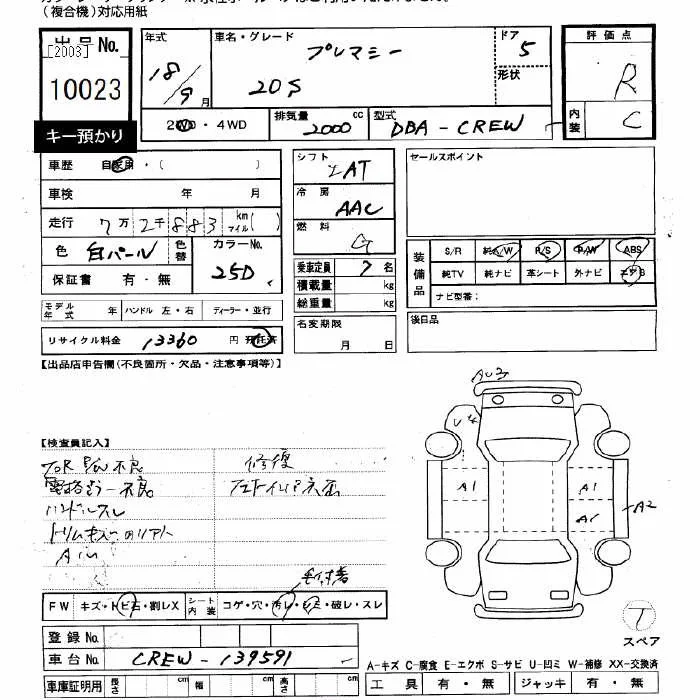 (複合機)対応用紙
出品No.
[2003]
10023
キー預かり
年式
18/9月
車名・グレード
プレマシー
20S
ドア
5
形状
評価点
R
内装
C
2WD・4WD
排気量
2000 cc
型式
DBA-CREW
車歴 自家用・( )
車検 年 月
走行 7万2千883 km マイル( )
色 白パール 色替
カラーNo.
25D
保証書 有・無
モデル年式 年 ハンドル 左・右 ディーラー・並行
リサイクル料金 13360 円 預託済
シフト
AT
冷房
AAC
燃料
G
乗車定員 7 名
積載量 kg
総重量 kg
名変期限
月 日
セールスポイント
装備品
S/R 純A/W P/S P/W ABS
純TV 純ナビ 革シート 外ナビ エアB
ナビ型番:
後日品
【出品店申告欄(不良箇所・欠品・注意事項等)】
【検査員記入】
修復
ハンドルスレ
AU3
A1
A1
A2
A1
FW キズ・トビ石・割レX シート内装 コゲ・穴・汚レ・シミ・破レ・スレ
登録No.
車台No. CREW-139591
車庫証明用 長さ cm 幅 cm 高さ cm
T
スペア
A-キズ C-腐食 E-エクボ S-サビ U-凹ミ W-補修 XX-交換済
工具 有・無 ジャッキ 有・無